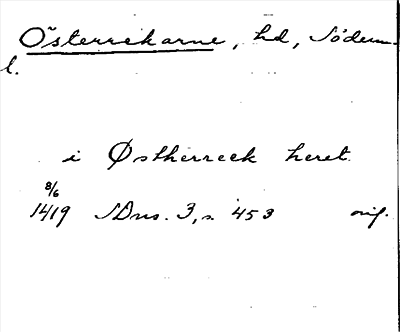 Österrekarne, hd, Söderm.
l.
i Østherreek heret
8/6
1419 SDns. 3, s. 453 orig.